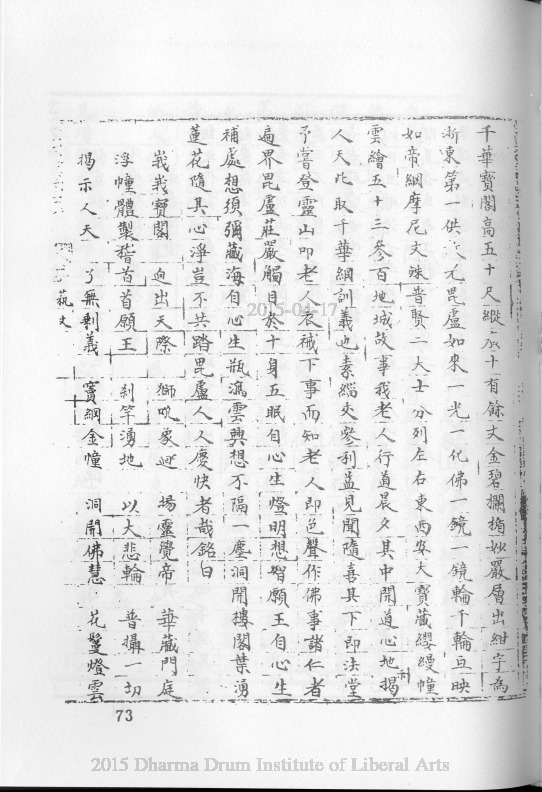 千華寶閣高五十尺縱广十有餘丈金碧欄楯妙嚴層出紺宇為
浙東第一供 尤毘盧如來一光一化佛一鏡一鏡輪千輪亘映
如帝網摩尼文殊普賢二大士分列左右東西安大寶藏纓縵幢
雲繪五十三參百地城故事我老人行道晨夕其中開道心地揭
人天此取千華綱訓義也素緇夾參利益見聞隨喜其下即法堂
予嘗登靈山叩老人衣裓下事而知老人即色聲作佛事諸仁者
遍界毘盧莊嚴觸目於十身五眠自心生燈明想智願王自心生
補處想須彌藏海自心生瓶瀉雲興想不隔一塵洞開樓閣葉湧
蓮花隨其心淨豈不共踏毘盧人人慶快者哉銘曰
峩峩寶閣 逈出天際 獅吼象迎 場靈覺帝 華藏門庭
浮幢體製稽首首願王 剎竿湧地 以大悲輪 普攝一切
揭示人天 了無剩義 寶網金幢 洞開佛慧 花鬘燈雲
藝文
73
2015-04-17
2015 Dharma Drum Institute of Liberal Arts